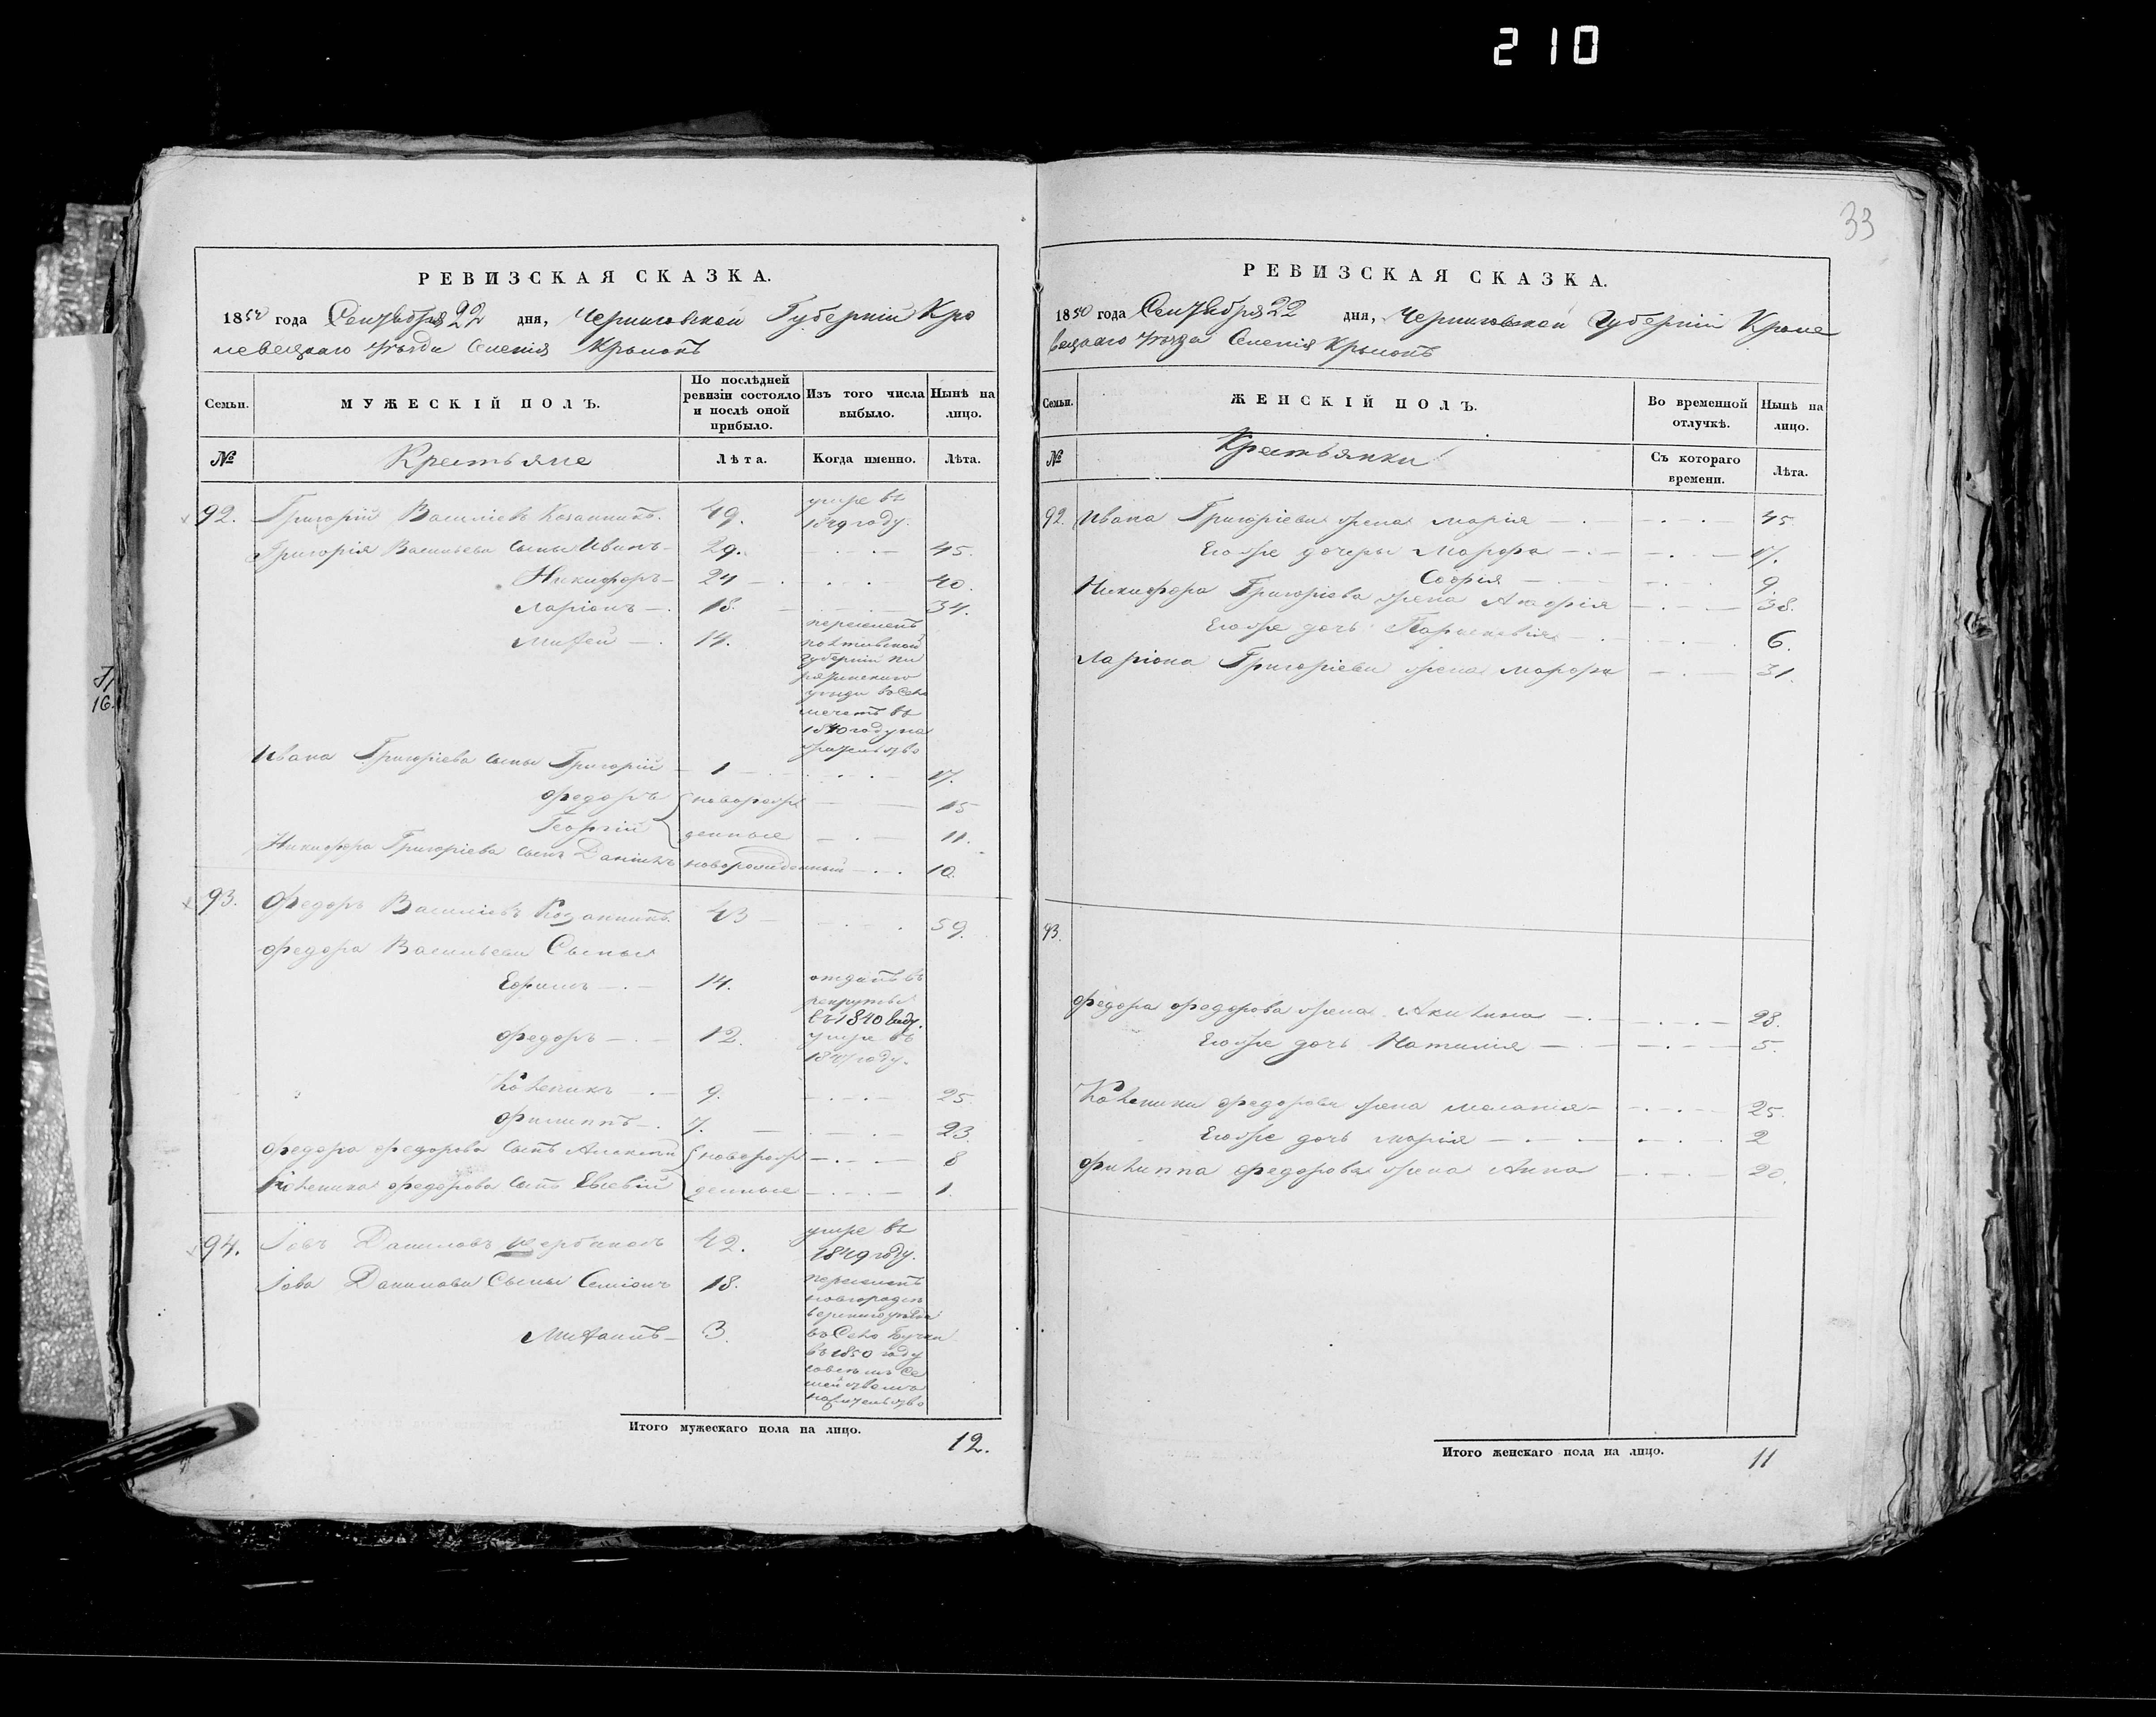 210
33
РЕВИЗСКАЯ СКАЗКА.
1850 года Сентября 22 дня, Черниговской Губерніи Кро
левецкаго уѣзда Селенія
Семьи.
МУЖЕСКІЙ ПОЛЪ.
По послѣдней ревизіи состояло и послѣ оной прибыло.
Изъ того числа выбыло.
Нынѣ на лицо.
№ Крестьяне Лѣта. Когда именно. Лѣта.
92. Григорій Василіевъ 49. умре въ 1849 году.
Григорія Васильева сыны Иванъ 29. 45.
Никифоръ 24 40.
Ларіонъ 18. 34.
14. переселенъ
полтавской
губерніи пи
рятинскаго
уѣзда въ село
въ
1840 году на
жительство
Ивана Григоріева сыны Григорій 1 17.
Федоръ новорож 15
Георгій денные 11.
Никифора Григоріева сынъ Даніилъ новорожденный 10.
93. Федоръ Василіевъ 43 59.
Федора Васильева Сыны
Ефимъ 14. отданъ въ
рекруты
въ 1840 году.
Федоръ 12. умре въ
году.
Каленикъ 9. 25.
Филиппъ 7. 23.
Федора Федорова сынъ Алексей новорож 8
Каленика Федорова сынъ Евсевій денные 1.
94. Іовъ Даниловъ 42. умре въ
1849 году.
Іова Данилова Сыны Семіонъ 18. переселенъ
3. въ Село
въ 1850 году
на жительство
Итого мужескаго пола на лицо. 12.
РЕВИЗСКАЯ СКАЗКА.
1850 года Сентября 22 дня, Черниговской Губерніи Кроле
вецкаго уѣзда Селенія
Семьи.
ЖЕНСКІЙ ПОЛЪ.
Во временной отлучкѣ.
Нынѣ на лицо.
№ Крестьянки Съ котораго времени. Лѣта.
92. Ивана Григоріева жена Марія 45.
Егоже дочеры Марфа 17.
Софія 9.
Никифора Григоріева жена Агафія 38.
Егоже дочь Параскевія 6.
Ларіона Григоріева жена Марфа 31.
93.
Федора Федорова жена Акилина 28.
Егоже дочь Наталія 5.
Каленика Федорова жена Меланія 25.
Егоже дочь Марія 2
Филиппа Федорова жена Анна 20.
Итого женскаго пола на лицо. 11